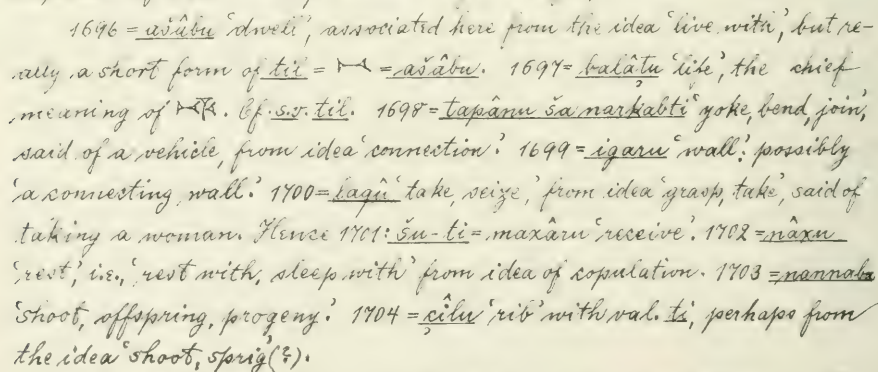 1696 = ašâbu 'dwell', associated here from the idea 'live with', but re-
ally a short form of til = 𒁁 = ašâbu. 1697 = balâtu 'life', the chief
meaning of . Cf. s.v. til. 1698 = tapânu ša narkabti 'yoke, bend, join',
said of a vehicle, from idea 'connection'. 1699 = igaru 'wall': possibly
'a connecting wall'. 1700 = laqû 'take, seize,' from idea 'grasp, take', said of
taking a woman. Hence 1701: šu-ti = maxâru 'receive'. 1702 = nâxu
'rest', i.e., 'rest with, sleep with' from idea of copulation. 1703 = nannabu
'shoot, offspring, progeny'. 1704 = çîlu 'rib' with val. ti, perhaps from
the idea 'shoot, sprig' (?).